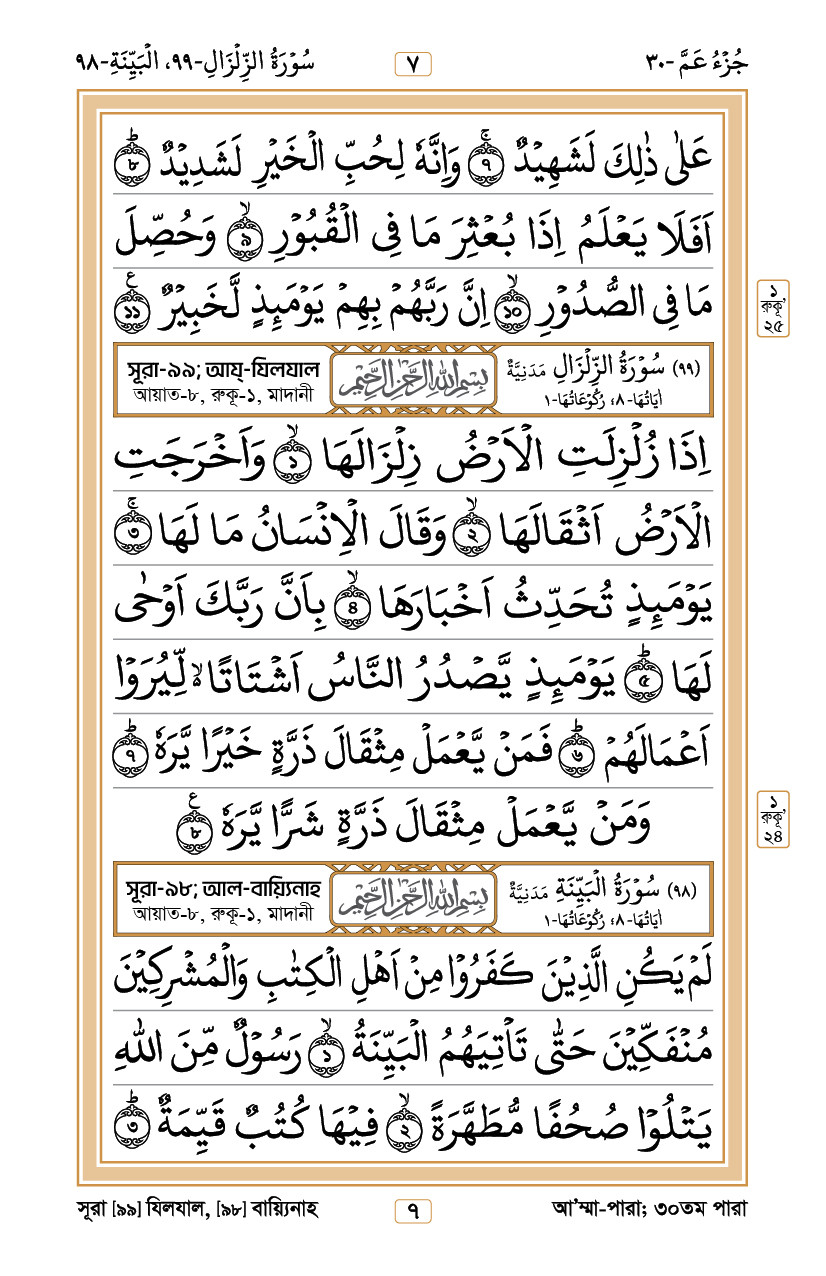 جُزْءُ عَمَّ -٣٠
٧
سُوْرَةُ الزِّلْزَالِ-٩٩، الْبَيِّنَةِ-٩٨
عَلٰى ذٰلِكَ لَشَهِيْدٌ ۚ ৭ وَاِنَّهٗ لِحُبِّ الْخَيْرِ لَشَدِيْدٌ ؕ ৮
اَفَلَا يَعْلَمُ اِذَا بُعْثِرَ مَا فِى الْقُبُوْرِ ۙ ৯ وَحُصِّلَ
مَا فِى الصُّدُوْرِ ۙ ১০ اِنَّ رَبَّهُمْ بِهِمْ يَوْمَئِذٍ لَّخَبِيْرٌ ع ১১
১
রুকূ'
২৫
(٩٩) سُوْرَةُ الزِّلْزَالِ مَدَنِيَّةٌ
اٰيَاتُهَا-٨، رُكُوْعَاتُهَا-١
بِسْمِ اللهِ الرَّحْمٰنِ الرَّحِيْمِ
সূরা-৯৯; আয্-যিলযাল
আয়াত-৮, রুকূ-১, মাদানী
اِذَا زُلْزِلَتِ الْاَرْضُ زِلْزَالَهَا ۙ ১ وَاَخْرَجَتِ
الْاَرْضُ اَثْقَالَهَا ۙ ২ وَقَالَ الْاِنْسَانُ مَا لَهَا ۚ ৩
يَوْمَئِذٍ تُحَدِّثُ اَخْبَارَهَا ۙ ৪ بِاَنَّ رَبَّكَ اَوْحٰى
لَهَا ؕ ৫ يَوْمَئِذٍ يَّصْدُرُ النَّاسُ اَشْتَاتًا ۙ لِّيُرَوْا
اَعْمَالَهُمْ ؕ ৬ فَمَنْ يَّعْمَلْ مِثْقَالَ ذَرَّةٍ خَيْرًا يَّرَهٗ ؕ ৭
وَمَنْ يَّعْمَلْ مِثْقَالَ ذَرَّةٍ شَرًّا يَّرَهٗ ع ৮
১
রুকূ'
২৪
(٩٨) سُوْرَةُ الْبَيِّنَةِ مَدَنِيَّةٌ
اٰيَاتُهَا-٨، رُكُوْعَاتُهَا-١
بِسْمِ اللهِ الرَّحْمٰنِ الرَّحِيْمِ
সূরা-৯৮; আল-বায়্যিনাহ
আয়াত-৮, রুকূ-১, মাদানী
لَمْ يَكُنِ الَّذِيْنَ كَفَرُوْا مِنْ اَهْلِ الْكِتٰبِ وَالْمُشْرِكِيْنَ
مُنْفَكِّيْنَ حَتّٰى تَاْتِيَهُمُ الْبَيِّنَةُ ۙ ১ رَسُوْلٌ مِّنَ اللهِ
يَتْلُوْا صُحُفًا مُّطَهَّرَةً ۙ ২ فِيْهَا كُتُبٌ قَيِّمَةٌ ؕ ৩
সূরা [৯৯] যিলযাল, [৯৮] বায়্যিনাহ
৭
আ'ম্মা-পারা; ৩০তম পারা